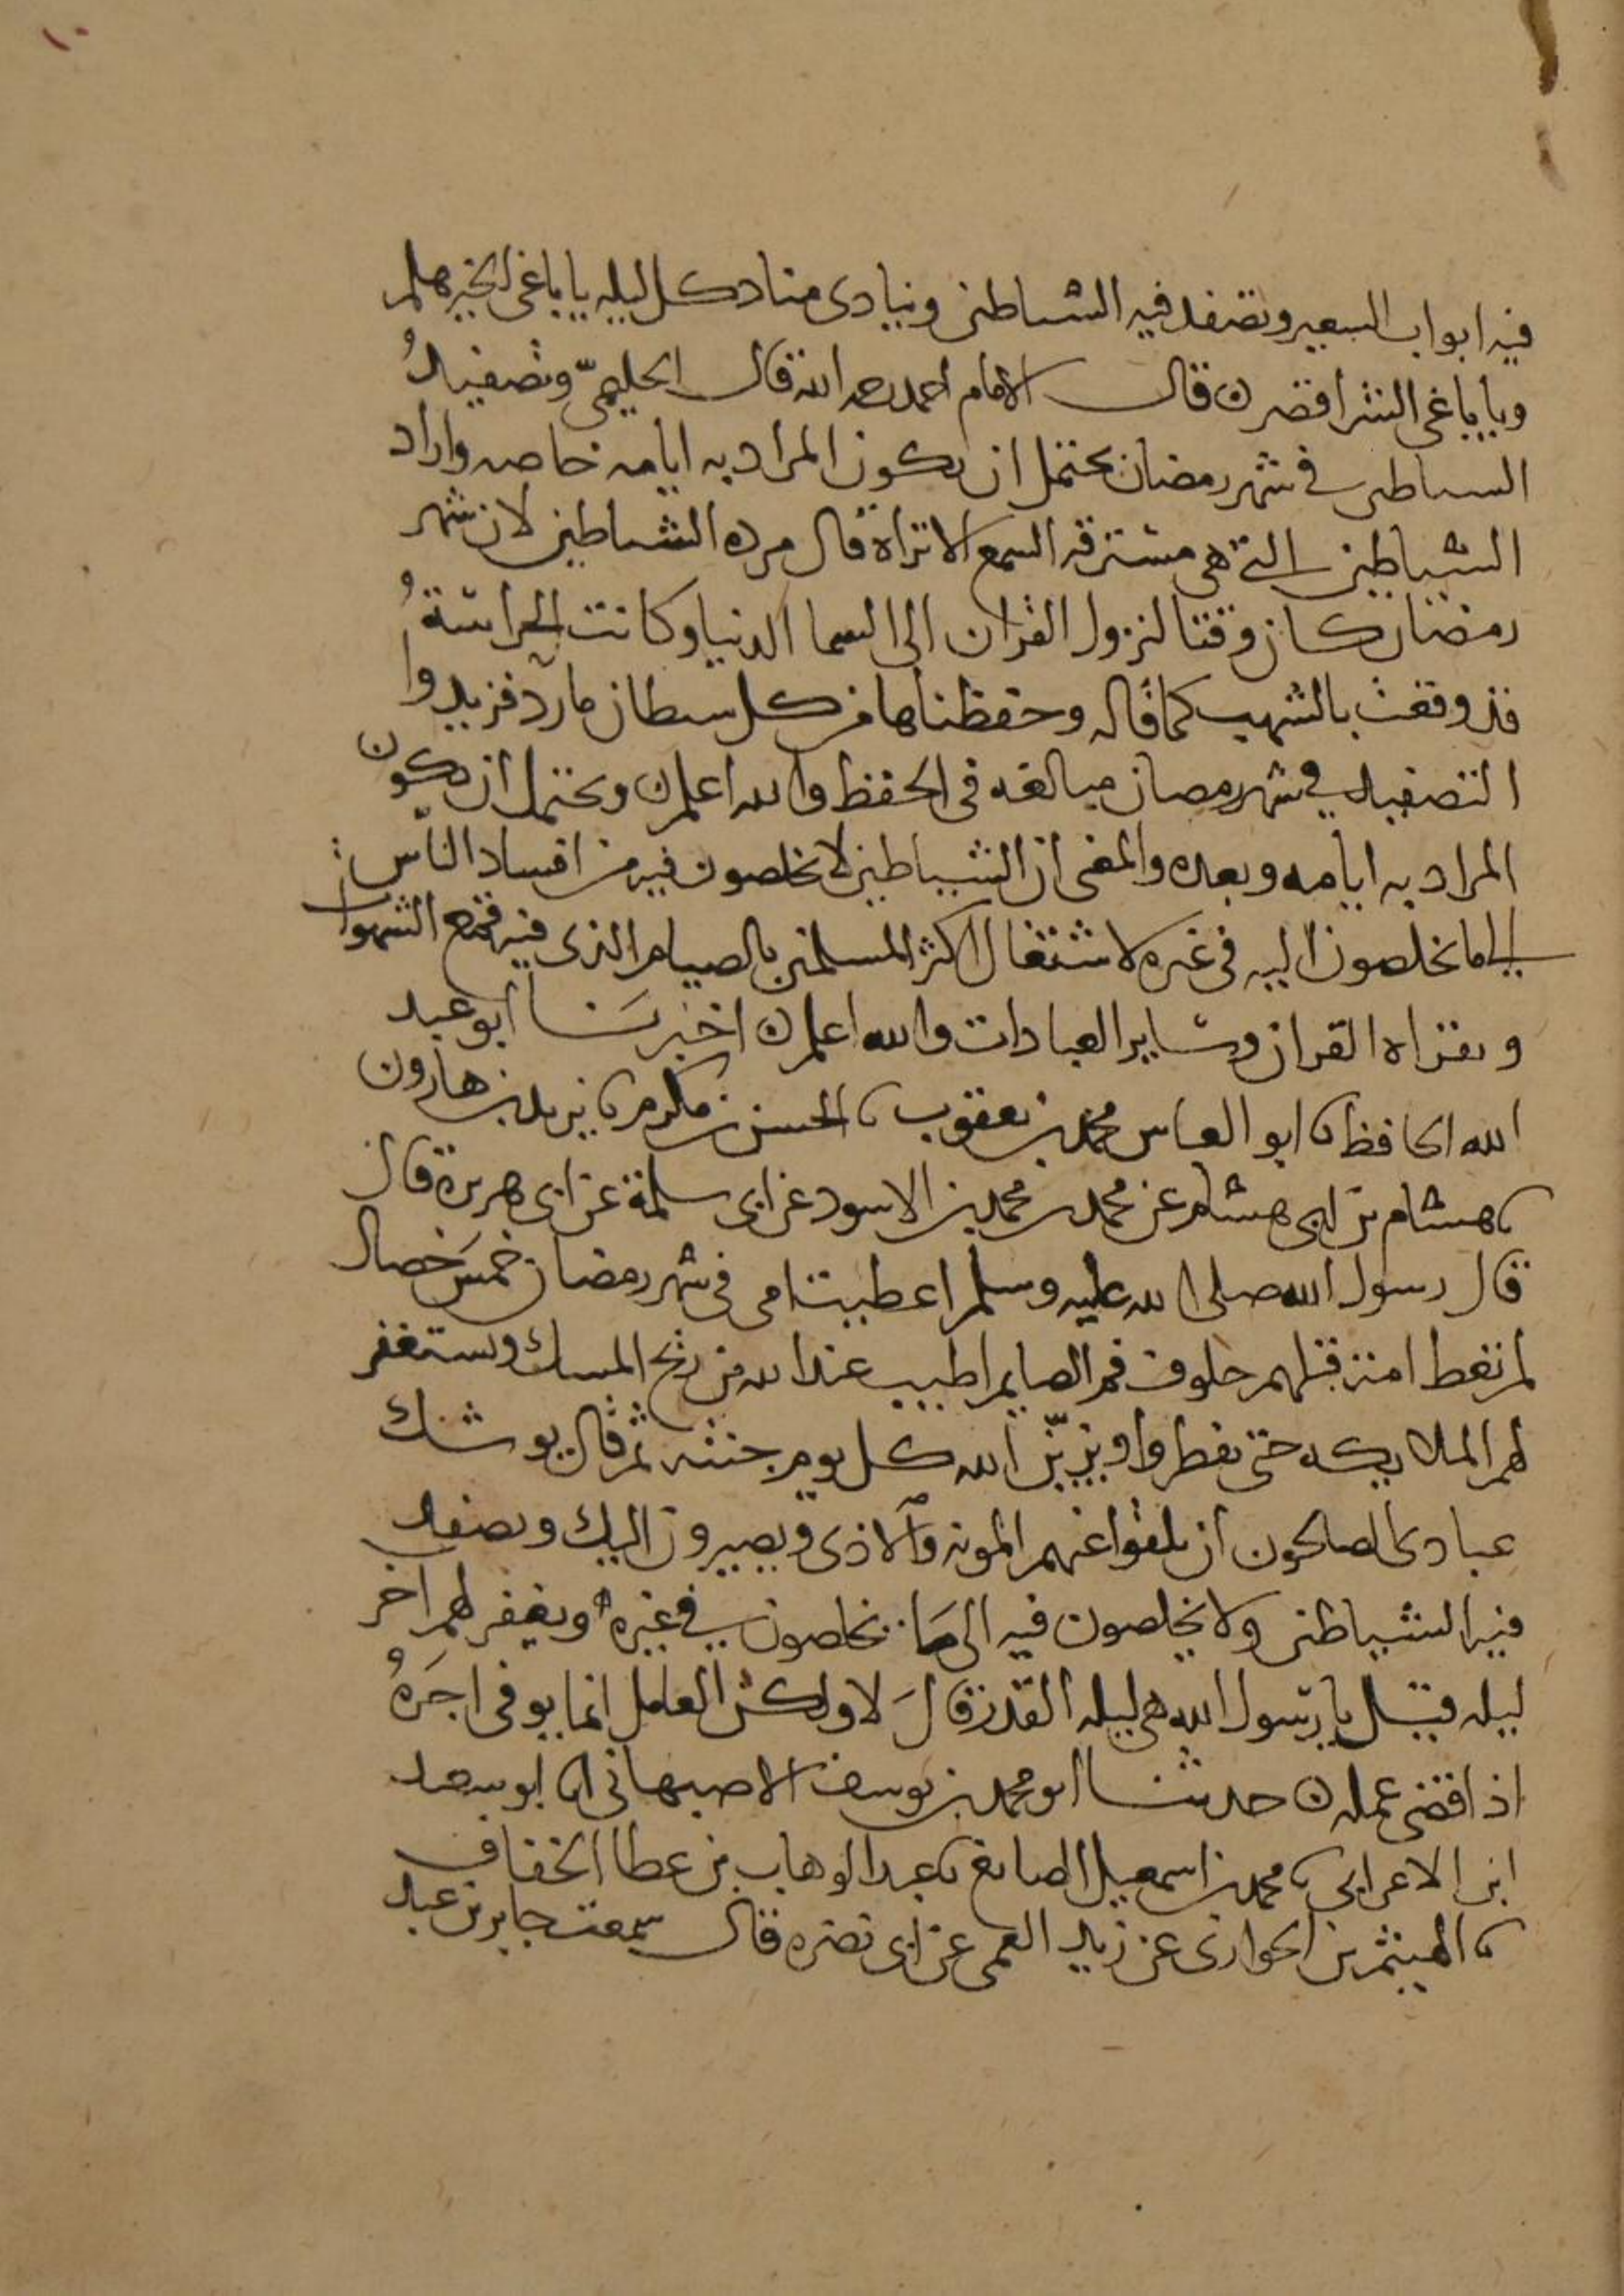 ١٠
فيه ابواب السعير وتصفد فيه الشياطين وينادى مناد كل ليله يا باغى الخير هلم
ويا باغى الشر اقصر ن قال الامام احمد رحمه الله قال الحليمىّ وتصفيدُ
الشياطين فى شهر رمضان يحتمل ان يكون المراد به ايامه خاصه واراد
الشياطين التى هى مسترقه السمع الا تراه قال مرده الشياطين لان شهر
رمضان كان وقتا لنزول القران الى السما الدنيا وكانت الحراسةُ
قد وقعت بالشهب كما قال وحفظناها من كل شيطان مارد فزيدوا
التصفيد فى شهر رمضان مبالغه فى الحفظ والله اعلم ن ويحتمل ان يكون
المراد به ايامه وبعده والمعنى ان الشياطين لا يخلصون فيه من افساد الناس
الى ما يخلصون اليه فى غيره لاشتغال اكثر المسلمين بالصيام الذى فيه قمع الشهوات
وبقراه القران وساير العبادات والله اعلم ن اخبرنا ابو عبد
الله الحافظ نا ابو العباس محمد بن يعقوب نا الحسن بن مكرم نا يزيد بن هارون
نا هشام بن ابى هشام عن محمد بن محمد بن الاسود عن ابى سلمة عن ابى هريرة قال
قال رسول الله صلى الله عليه وسلم اعطيت امتى فى شهر رمضان خمسَ خصال
لم تعط امة قبلهم خلوف فم الصايم اطيب عند الله من ريح المسك وتستغفر
لهم الملايكه حتى يفطروا ويزيّن الله كل يوم جنته ثم قال يوشك
عبادى الصالحون ان يلقوا عنهم المونه والاذى ويصيرون اليك وتصفد
فيه الشياطين ولا يخلصون فيه الى ما يخلصون فى غيره ويغفر لهم اخر
ليله قيل يا رسول الله هى ليله القدر قالَ لا ولكن العامل انما يوفى اجرَهُ
اذا قضى عمله ن حدثنا ابو محمد بن يوسف الاصبهانى انا ابو سعيد
ابن الاعرابى نا محمد بن اسمعيل الصايغ نا عبد الوهاب بن عطا الخفاف
نا الهيثم بن الحوارى عن زيد العمى عن ابى نضره قال سمعت جابر بن عبد